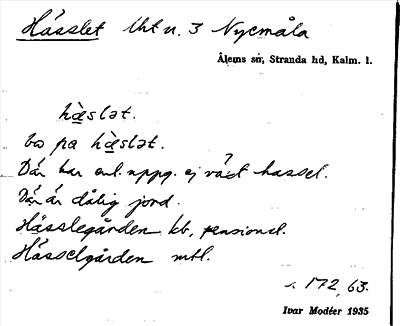 Hässlet lht u. 3 Nycmåla
Ålems sn, Stranda hd, Kalm. l.
hä̀slət.
bo pa hä̀slət.
Där har enl. uppg. ej växt hassel.
Det är dålig jord.
Hässlegården kb, pensionat.
Hässelgården mtl.
s. 172, 63.
Ivar Modéer 1935